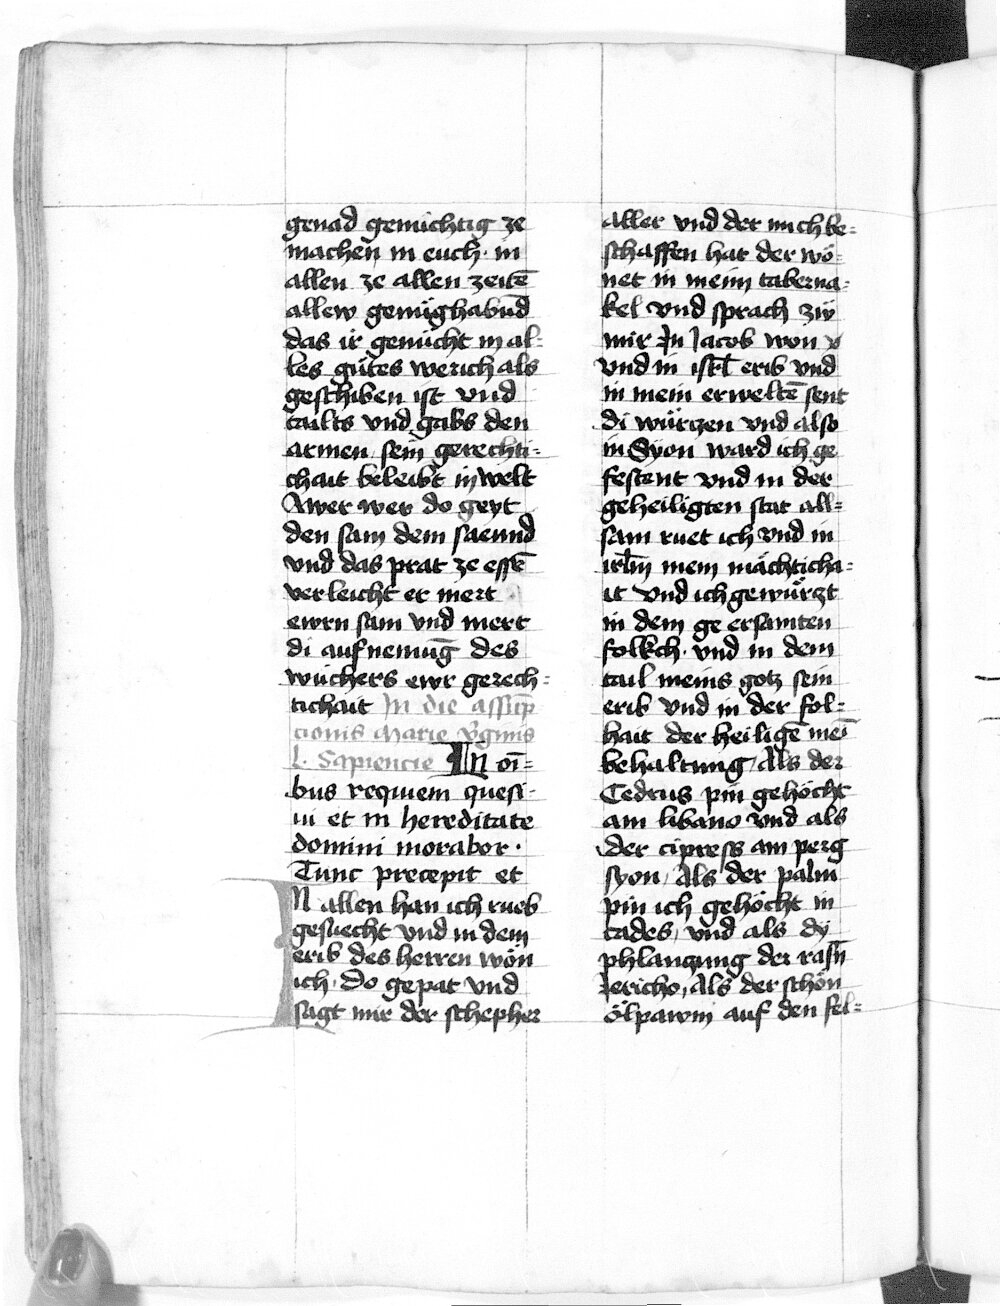 genad genuchtig ze
machen in euch · in
allen ze allen zeitē
allew genüghabūd
das ir genucht in al=
les gütes werich als
geschiben ist vnd
tailts vnd gabs den
armen / sein gerechti=
chait beleibt in welt
Awer wer do geyt
den sam dem saennd
vnd das prat ze essē
verleicht er mert
ewrn sam vnd mert
di aufnemūg des
wuchers ewr gerech=
tichait In die assūp
cionis Marie v̾ginis
l. Sapiencie IN oı̄=
bus requiem quesi=
ui et in hereditate
domini morabor ·
Tunc precepit et
IN allen han ich rueb
gesuecht vnd in dem
erib des herren wön
ich · Do gepat vnd
sagt mir der schepher
aller vnd der mich be=
schaffen hat der wo=
net in meim taberna=
kel vnd sprach zü
mir In Jacob won
vnd in isrl̄ erib vnd
in mein erweltē sent
di würtzen vnd also
in Syon ward ich ge
festent vnd in der
geheiligten stat all=
sam ruet ich vnd in
irl̄m mein mächticha=
it vnd ich gewürtzt
in dem ge ersamten
folkch · vnd in dem
tail meins gotz sein
erib vnd in der fol=
hait der heiligē mei
behaltung / Als der
Cedrus pin gehöcht
am libano vnd als
der cipress am perg
syon / Als der palm
pin ich gehöcht in
cades / vnd als dy
phlanczung der rasn̄
Jericho / Als der schön
ölpawm auf den fel=